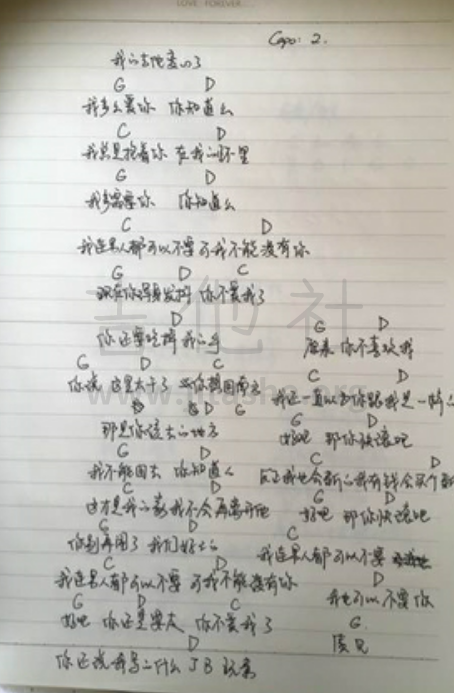 LOVE FOREVER
Capo: 2.
我的吉他变心了
G D
我多么爱你 你知道么
C D
我总是抱着你 在我的怀里
G D
我多需要你 你知道么
C D
我连男人都可以不要 可我不能没有你
G D C
现在你浑身发抖 你不爱我了
D
你还要吃掉我的手
G D C
你说 这里太干了 你想回南方
D G
那是你该去的地方
G D
我不能回去 你知道么
C D
这才是我的家 我不会再离开他
G D
你别再闹了 我们好好的
C D
我连男人都可以不要 可我不能没有你
G D C
好吧 你还是要走 你不爱我了
D
你还说我写的什么JB玩意
G D
原来 你不喜欢我
C D
我还一直以为你跟我是一样
G D
好吧 那你快滚吧
C D
我也会 的 我有钱会买个
G D
好吧 那你快滚吧
C
我连男人都可以不要
D
我也可以不要你
G
吉他社
www.jitashe.org